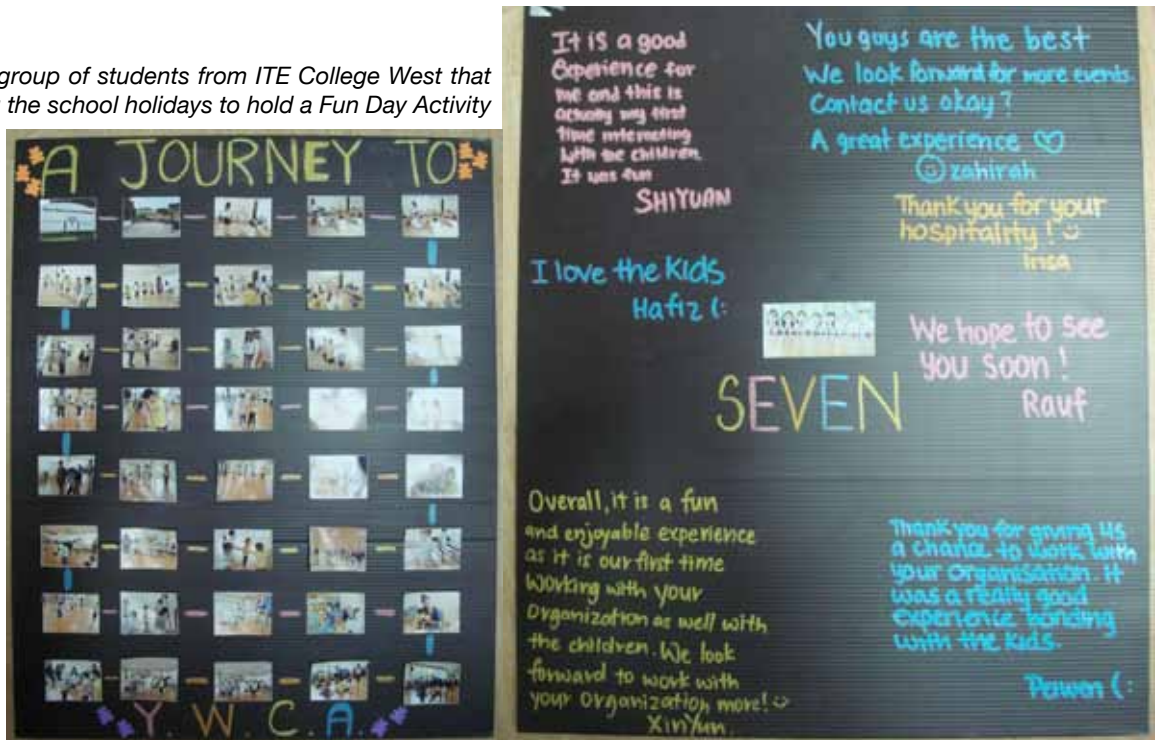 group of students from ITE College West that
the school holidays to hold a Fun Day Activity
A JOURNEY TO
Y. W. C. A.
It is a good
Experience for
me and this is
actually my first
time interacting
with the children.
It was fun
SHIYUAN
You guys are the best
We look forward for more events.
Contact us okay?
A great experience ♡
☺ zahirah
Thank you for your
hospitality! ☺
Irsa
I love the kids
Hafiz (:
We hope to see
you soon!
Rauf
SEVEN
Overall, it is a fun
and enjoyable experience
as it is our first time
working with your
Organization as well with
the children. We look
forward to work with
your Organization more! ☺
XinYun.
Thank you for giving us
a chance to work with
your organisation. It
was a really good
experience bonding
with the kids.
Pawen (: